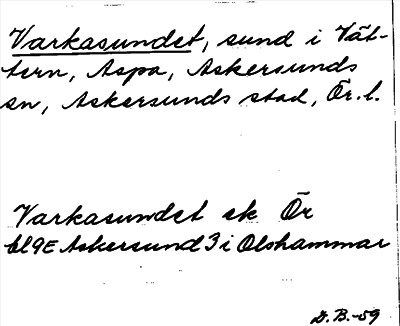 Varkasundet, sund i Vät-
tern, Aspa, Askersunds
sn, Askersunds stad, Ör. l.
Varkasundet ek Ör
bl 9E Askersund 3 i Olshammar
D. B. -59